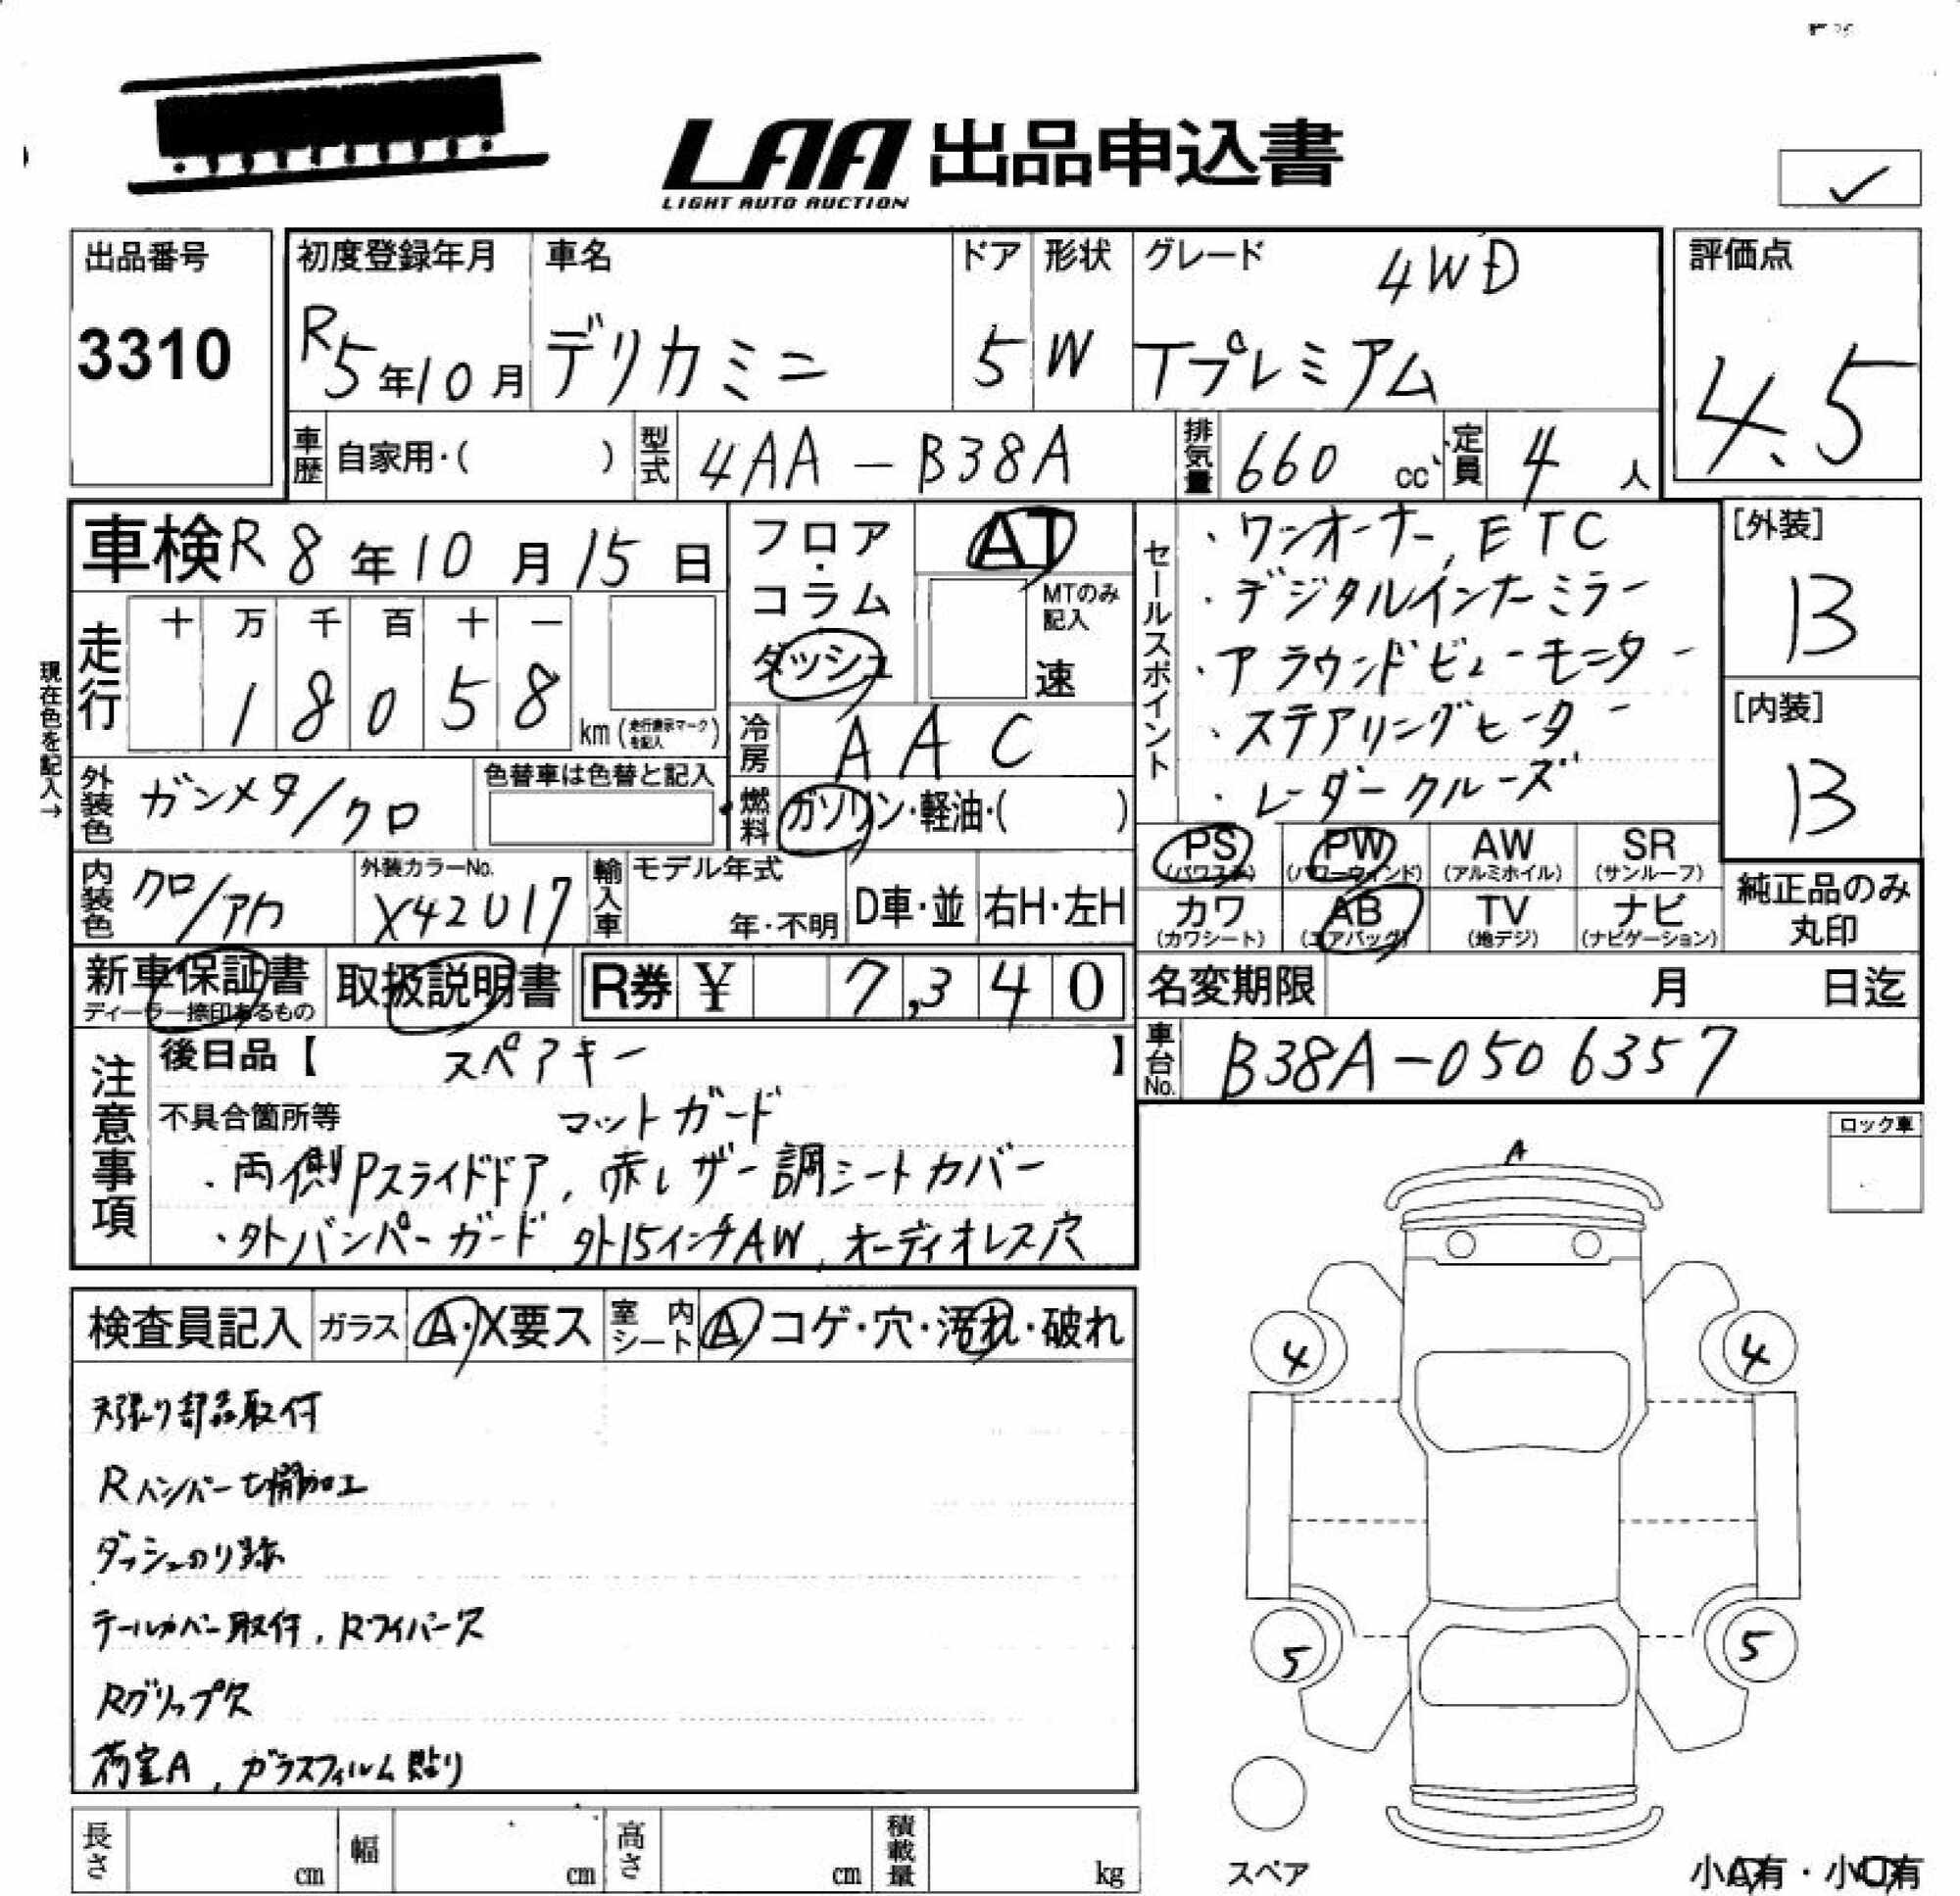 LAA 出品申込書
LIGHT AUTO AUCTION
✓
出品番号
3310
初度登録年月
R5年10月
車名
デリカミニ
ドア
5
形状
W
グレード
4WD
Tプレミアム
評価点
4.5
車歴 自家用・( )
型式 4AA-B38A
排気量 660 cc
定員 4 人
車検 R8年10月15日
フロア・コラム
ダッシュ
AT
MTのみ記入
速
現在色を記入→
走行
十 万 千 百 十 一
1 8 0 5 8
km (走行表示マークを記入)
冷房 AAC
燃料 ガソリン・軽油・( )
外装色 ガンメタ/クロ
色替車は色替と記入
内装色 クロ/アカ
外装カラーNo.
X42U17
輸入車
モデル年式
年・不明
D車・並
右H・左H
セールスポイント
・ワンオーナー, ETC
・デジタルインナーミラー
・アラウンドビューモニター
・ステアリングヒーター
・レーダークルーズ
[外装]
B
[内装]
B
PS (パワステ)
PW (パワーウィンド)
AW (アルミホイル)
SR (サンルーフ)
カワ (カワシート)
AB (エアバッグ)
TV (地デジ)
ナビ (ナビゲーション)
純正品のみ
丸印
新車保証書
ディーラー捺印あるもの
取扱説明書
R券 ¥ 7,340
名変期限 月 日迄
車台No. B38A-0506357
注意事項
後日品【 スペアキー 】
不具合箇所等 マットガード
・両側Pスライドドア, 赤レザー調シートカバー
・外バンパーガード 外15インチAW, オーディオレス穴
ロック車
検査員記入
ガラス A・X要ス
室内シート A コゲ・穴・汚れ・破れ
天張り部品取付
Rバンパー切削加工
ダッシュのり跡
テールカバー取付, Rワイパー欠
Rグリップ欠
荷室A, ガラスフィルム貼り
A
4
4
5
5
スペア
小A有・小U有
長さ cm
幅 cm
高さ cm
積載量 kg